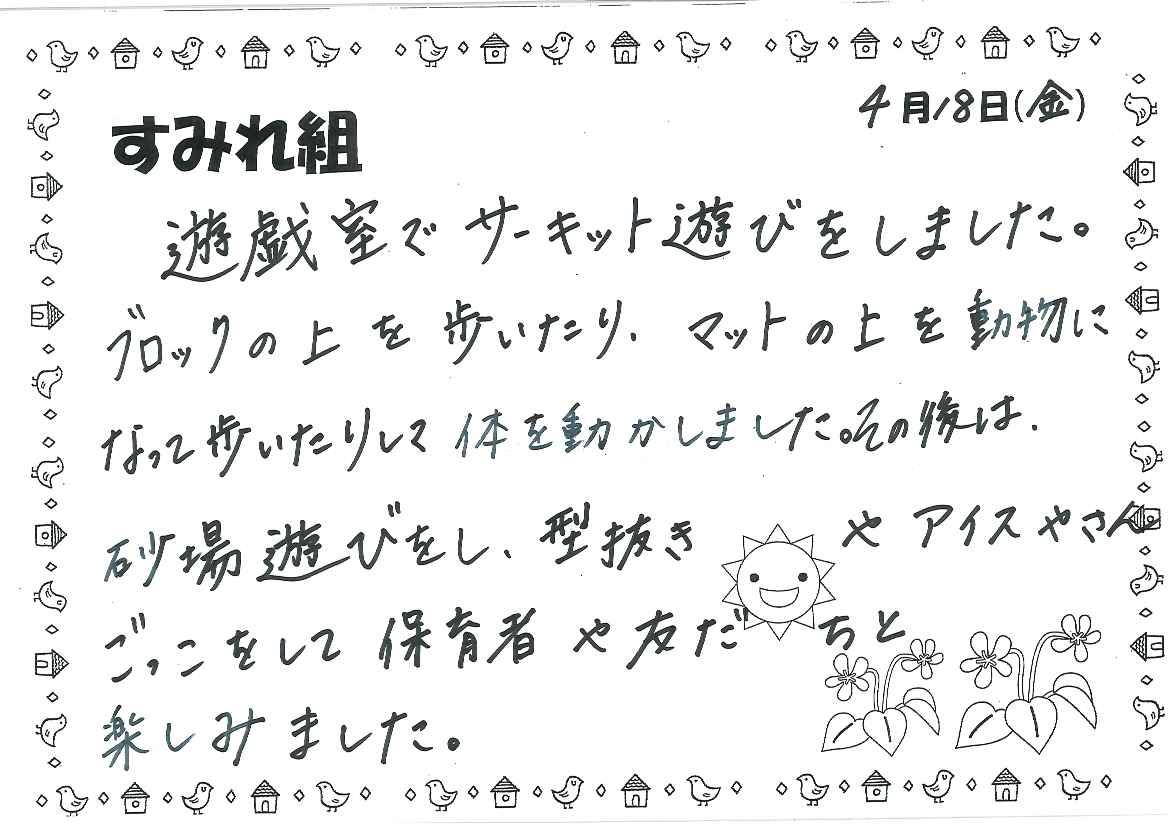 4月18日(金)
すみれ組
遊戯室でサーキット遊びをしました。
ブロックの上を歩いたり、マットの上を動物に
なって歩いたりして体を動かしました。その後は、
砂場遊びをし、型抜きやアイスやさん
ごっこをして保育者や友だちと
楽しみました。